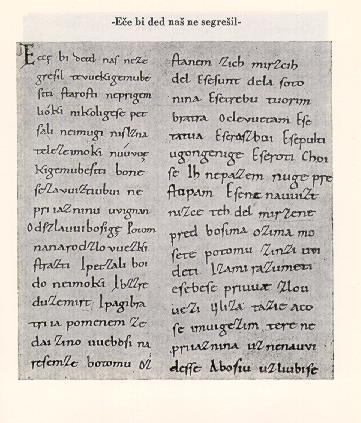 -Eče bi ded naš ne segrešil-
Ecce bi detd naſ neze
greſil tevuekigemube
ſiti ſtaroſti neprigem
lióki nikoligeſe pet
ſali neimugi niſlzna
teleźeimoki nuuvue
kigemubeſiti bone
ſezavuiztiubui ne
priiazninu uvignan
Odſzlauuiboſige Potom
nanarodzlovuezki
ſtrazti Ipetzali boi
do neimoki Ibzzre
duzemirt Ipagibra
triia pomenem ze
dai zinouueboſi na
reſemze botomu oz
ſtanem zich mirzcih
del Eſeſunt dela ſoto
nina Eſetrebu tuorim
bratra Oclevuetam Eſe
tatua Eſerazboi Eſepulti
ugongenige Eſeroti Choi
ſe Ih nepazem nuge pre
ſtopam Eſene nauuizt
nizce teh del mirzene
pred boſima ozima mo
ſete potomu zinzi uvi
deti Izami razumeti
eſebeſe priuuae zlou
uezi Uliza tazie aco
ſe imuigezim, tere ne
priiaznina uznenauvi
deſſe Aboſiu uzliubiſe